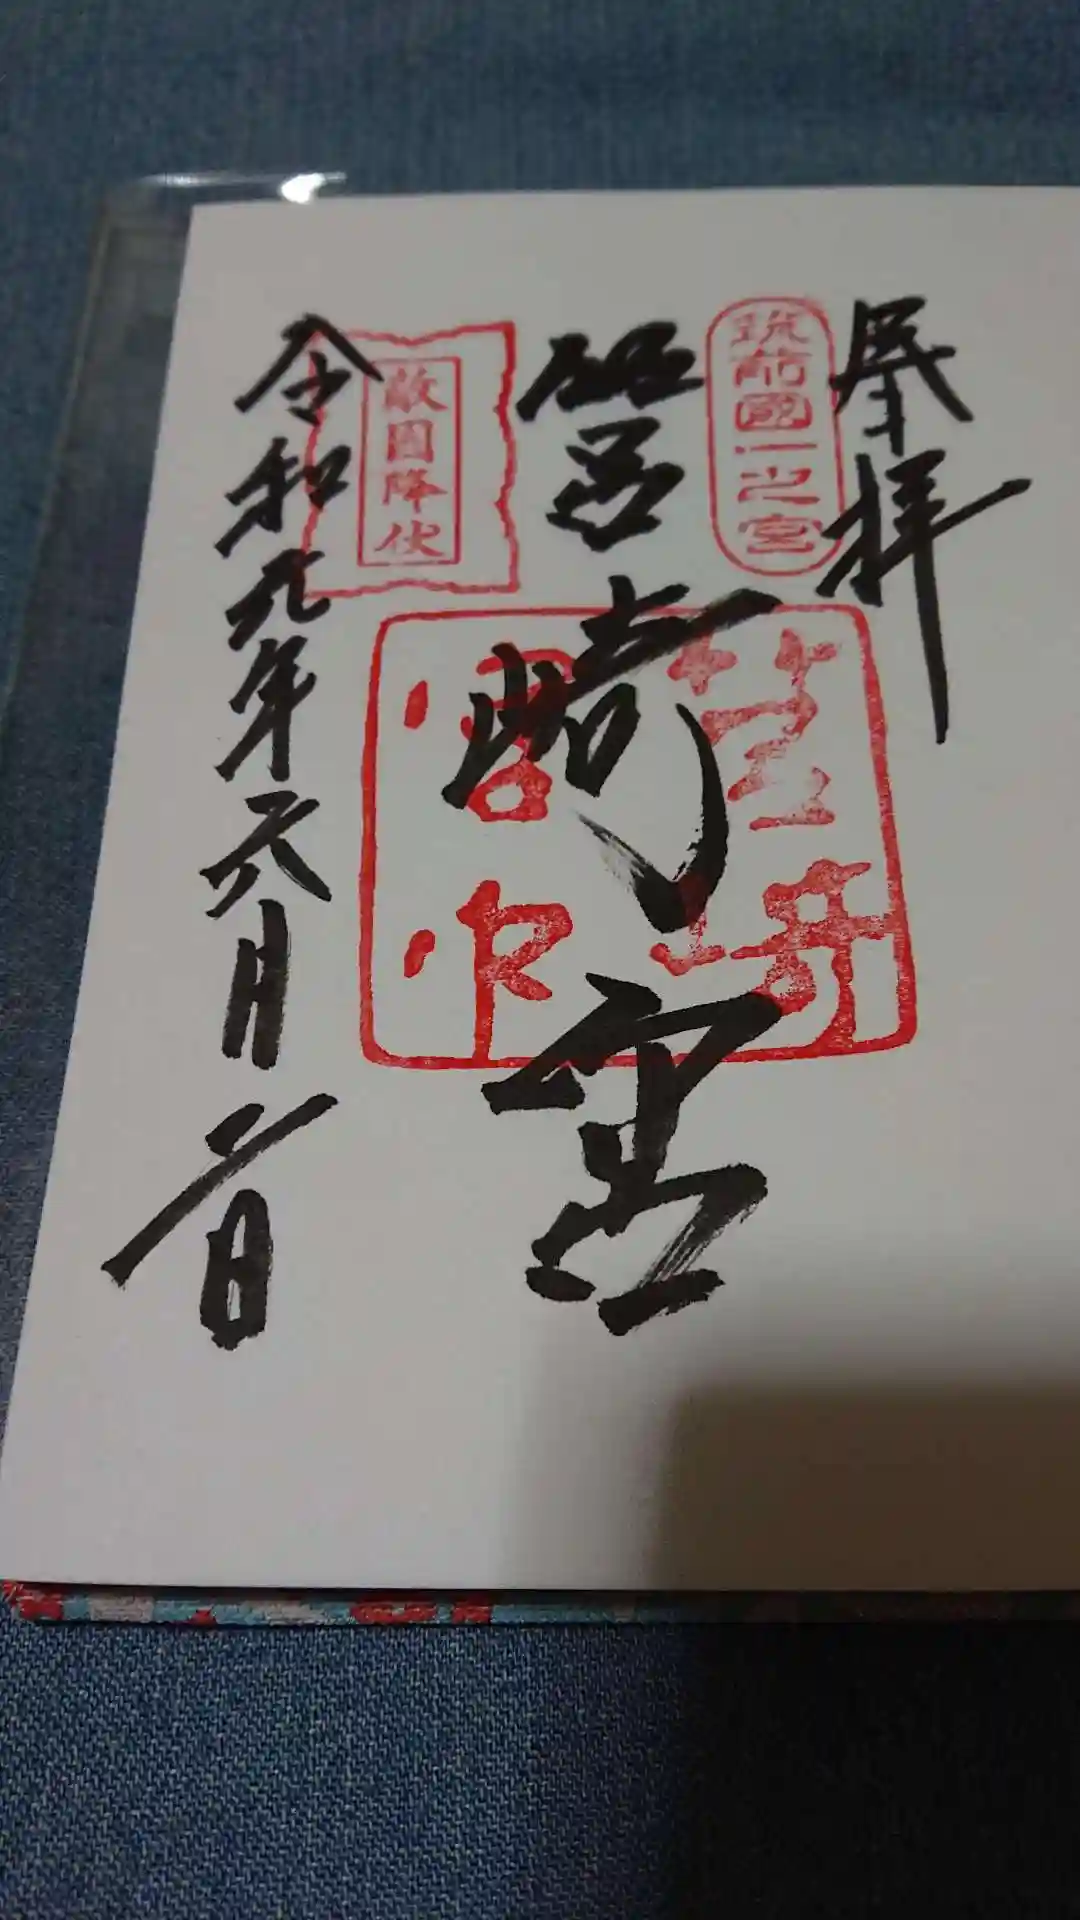 奉拝
筑前國一之宮
筥崎宮
筥崎
宮印
敵国降伏
令和元年六月一日